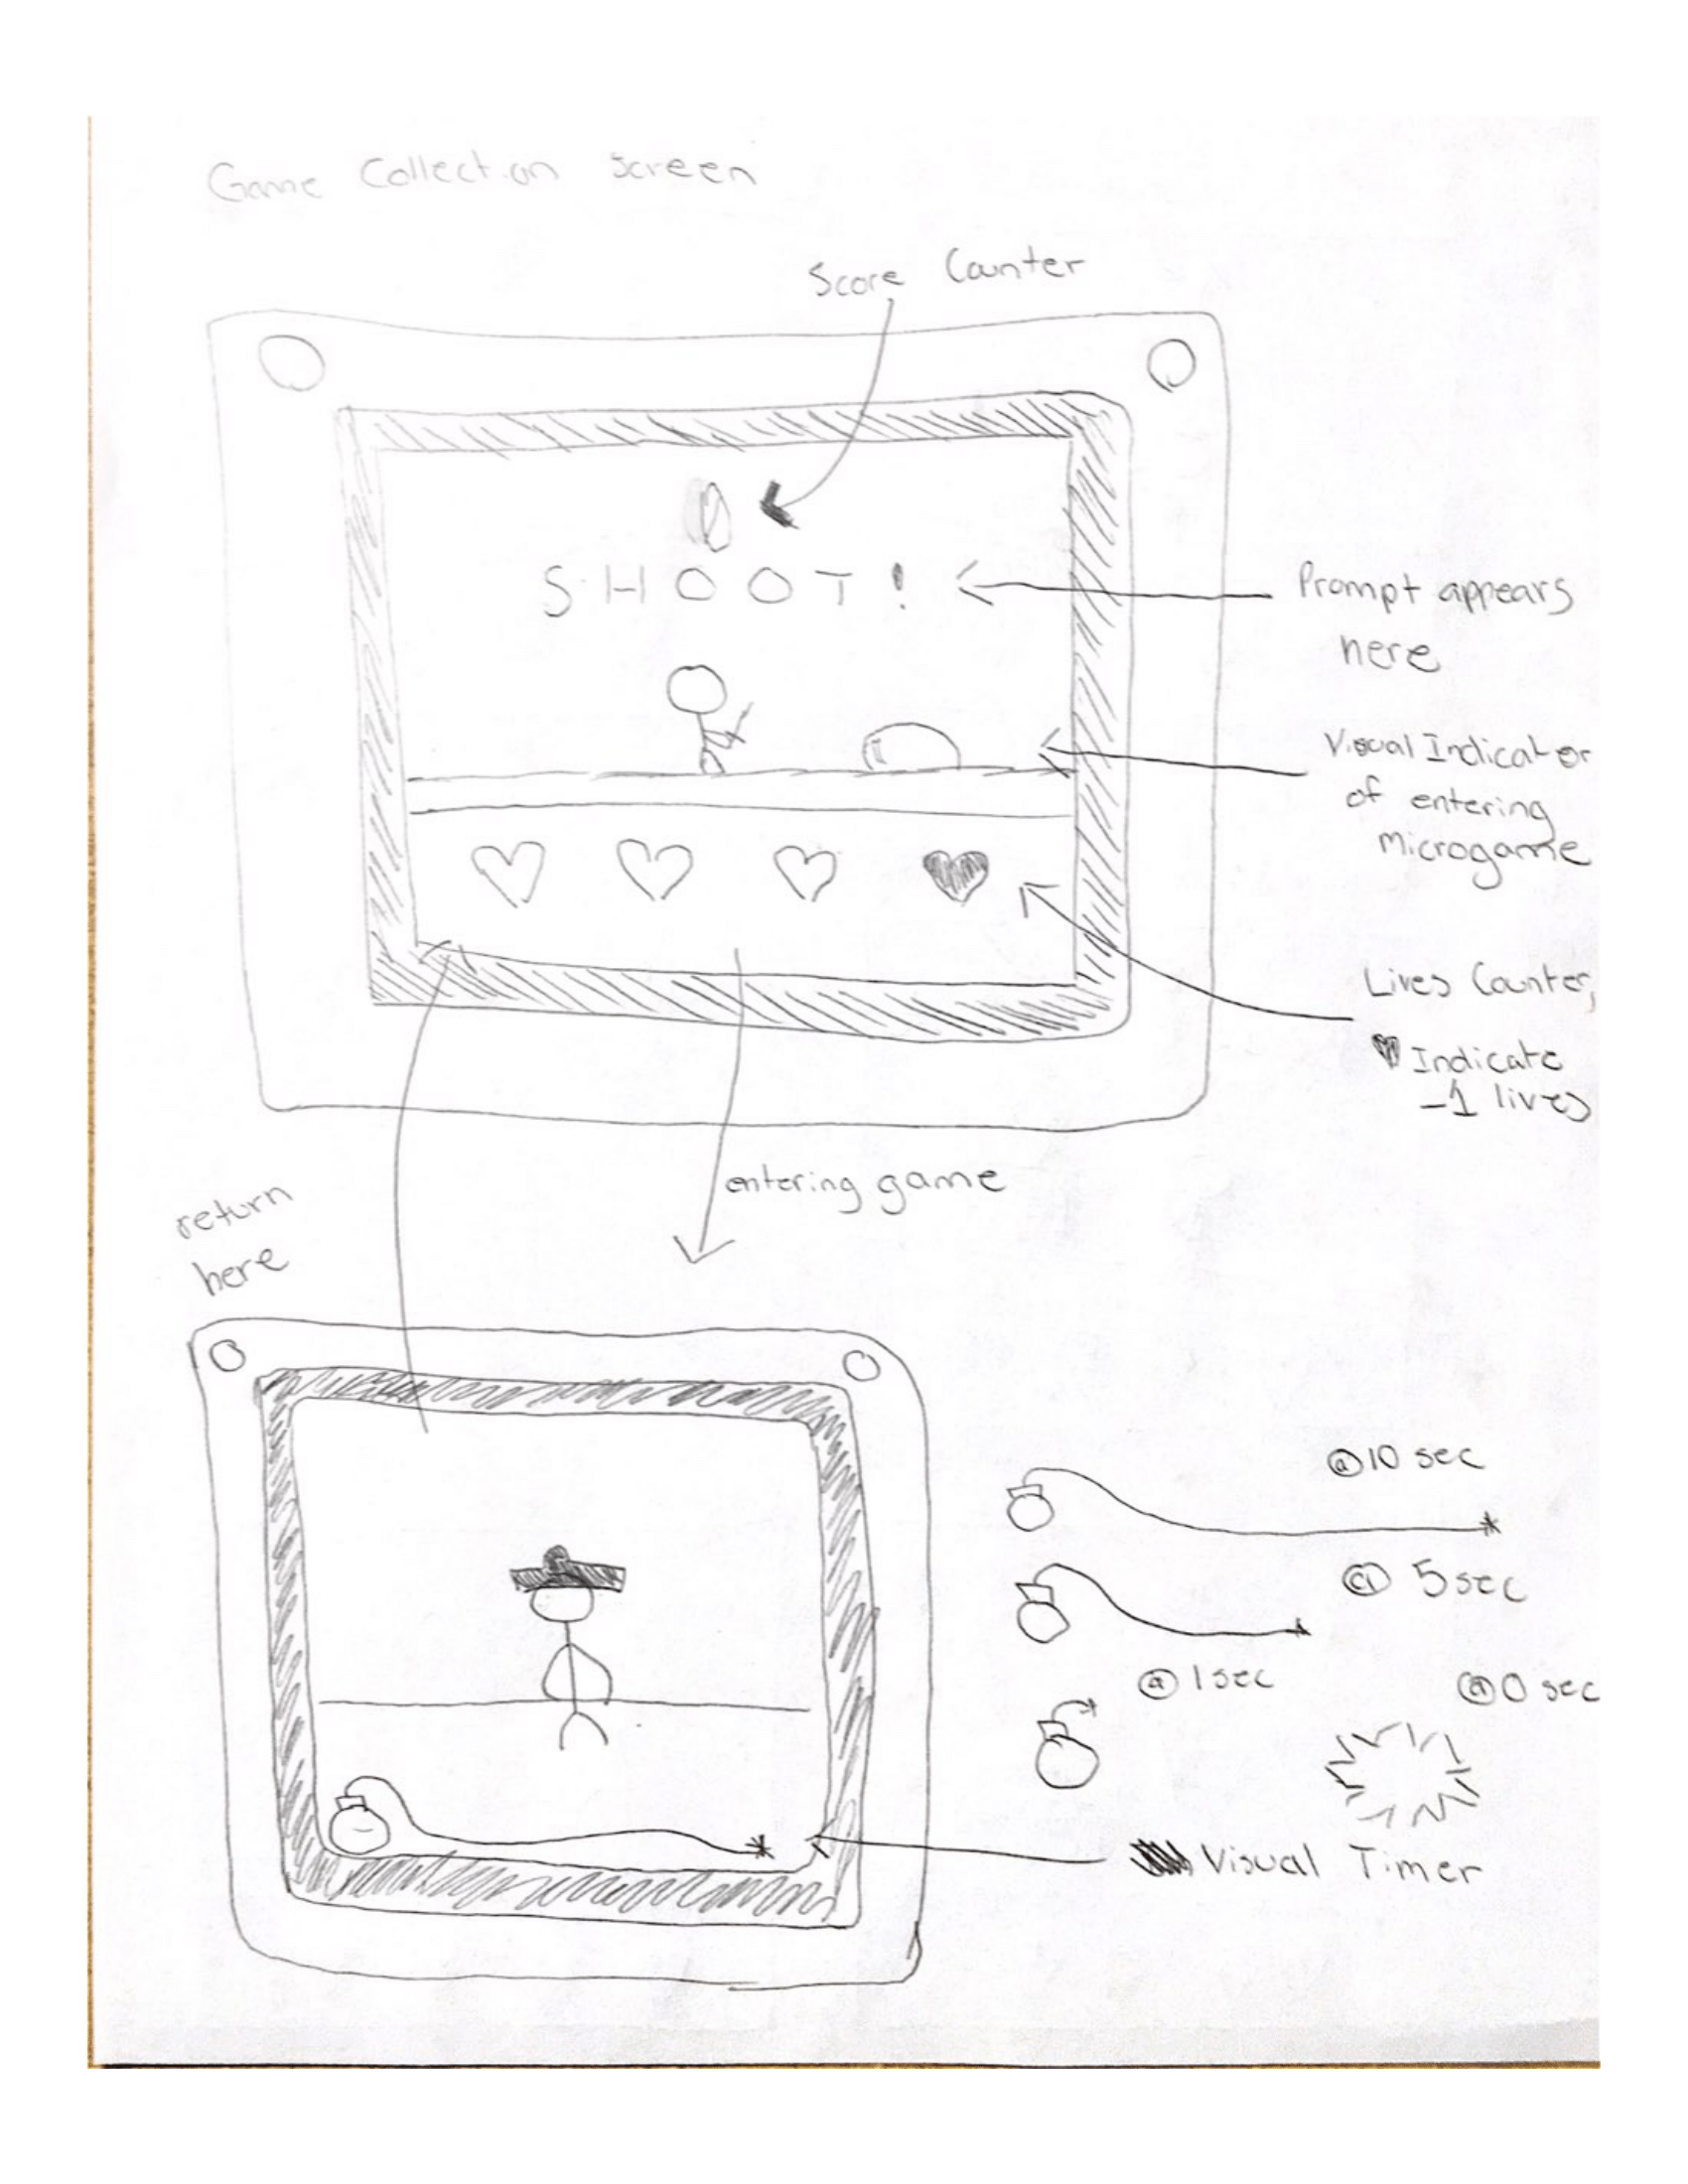 Game Collection Screen
Score Counter
0
SHOOT!
Prompt appears
here
Visual Indicator
of entering
microgame
Lives Counter,
Indicate
-1 lives
entering game
return
here
@10 sec
@ 5sec
@ 1sec
@0 sec
Visual Timer